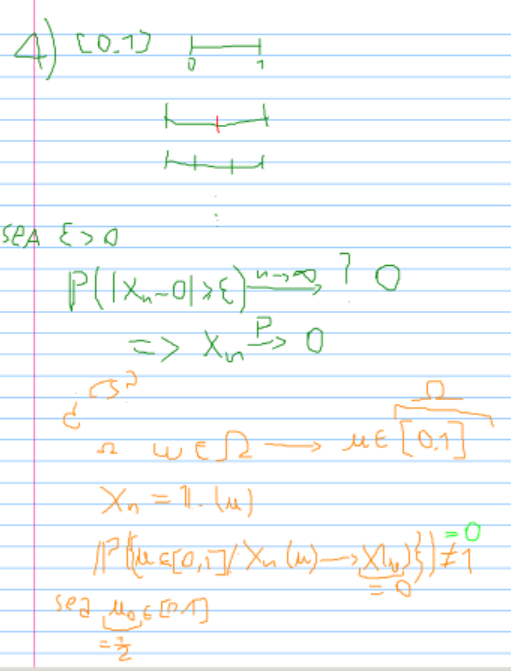 4) [0,1]
0 1
⋮
SEA ε>0
ℙ(|Xn-0|≥ε) n→∞ ? 0
=> Xn P→ 0
¿ CS?
Ω
Ω ω∈Ω → μ∈[0,1]
Xn = 1.(μ)
= 0
ℙ({μ∈[0,1]/Xn(μ)→X(μ)}) ≠ 1
= 0
sea μ0∈[0,1]
= 1/2